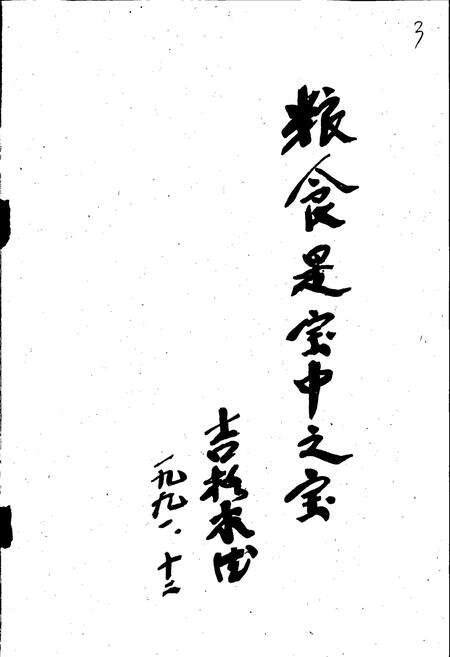 粮食是宝中之宝
吉格木德
一九九一、十二
3